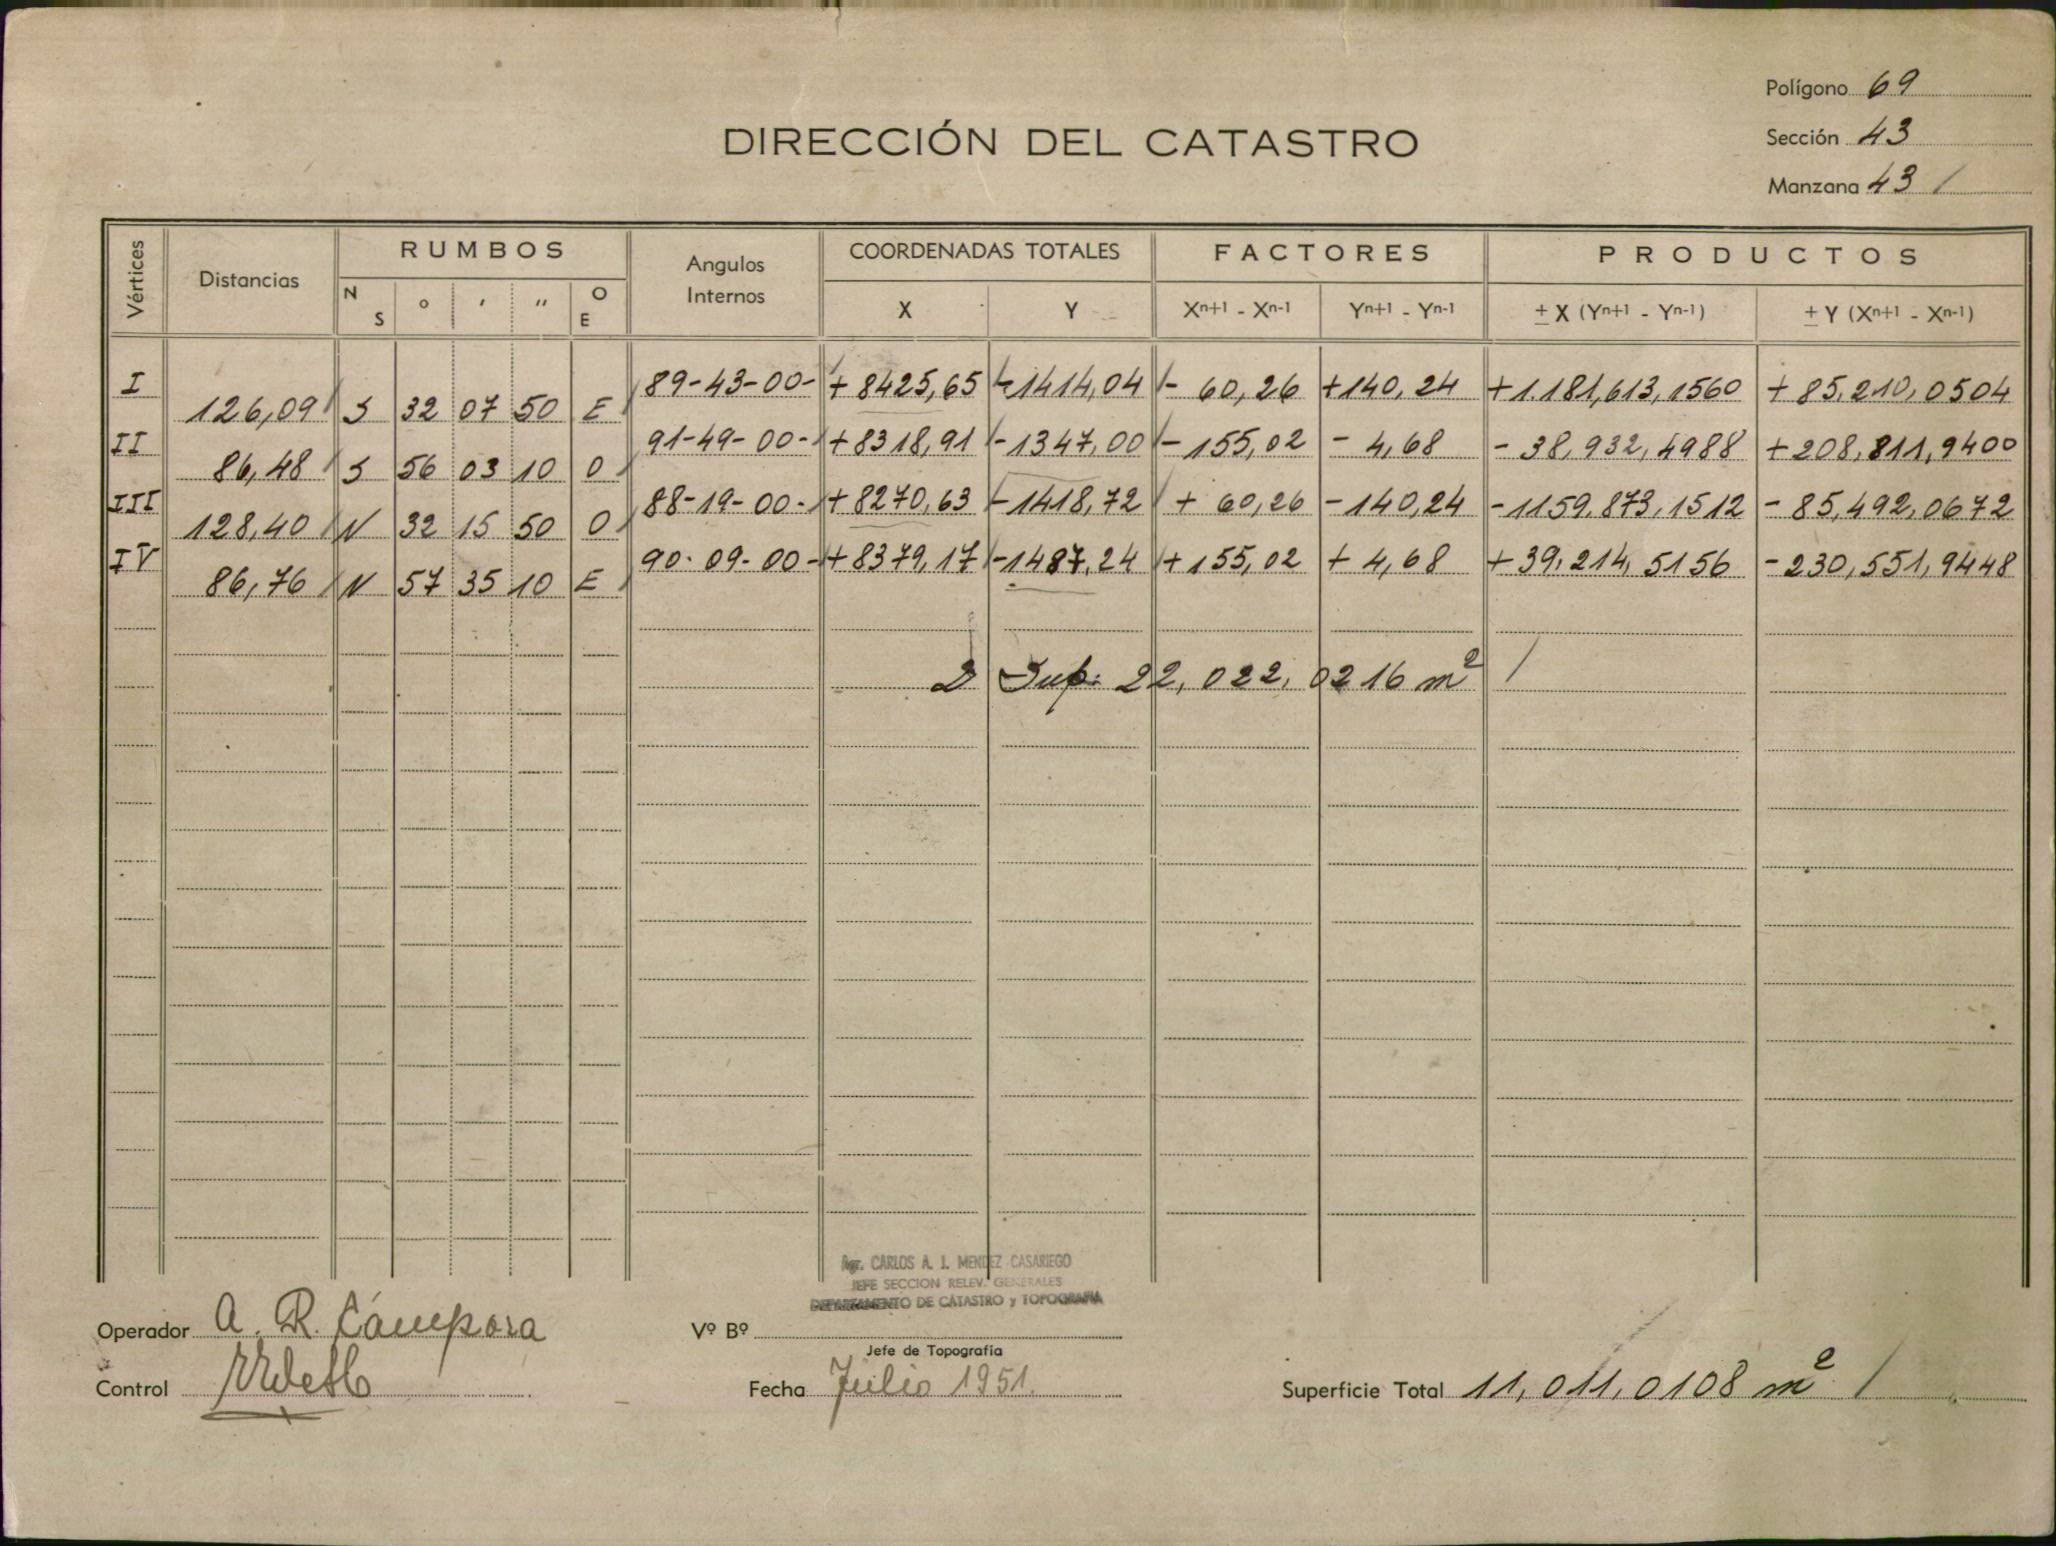 Polígono 69
DIRECCIÓN DEL CATASTRO
Sección 43
Manzana 43 /
Vértices Distancias RUMBOS Angulos Internos COORDENADAS TOTALES FACTORES PRODUCTOS
N S ° ' " O E X Y Xn+1 - Xn-1 Yn+1 - Yn-1 ± X (Yn+1 - Yn-1) ± Y (Xn+1 - Xn-1)
I 89-43-00- +8425,65 -1414,04 - 60,26 +140,24 +1.181,613,1560 + 85,210,0504
126,09 S 32 07 50 E
II 91-49-00- +8318,91 -1347,00 - 155,02 - 4,68 - 38,932,4988 +208,811,9400
86,48 S 56 03 10 O
III 88-19-00- +8270,63 -1418,72 + 60,26 -140,24 -1159,873,1512 - 85,492,0672
128,40 N 32 15 50 O
IV 90-09-00- +8379,17 -1487,24 +155,02 + 4,68 +39,214,5156 -230,551,9448
86,76 N 57 35 10 E
2 Sup: 22,022,0216 m² /
Agr. CARLOS A. J. MENDEZ CASARIEGO
JEFE SECCION RELEV. GENERALES
DEPARTAMENTO DE CATASTRO y TOPOGRAFIA
Operador A. R. Cámpora
Vº Bº
Jefe de Topografía
Control
Fecha Julio 1951.
Superficie Total 11,011,0108 m² /